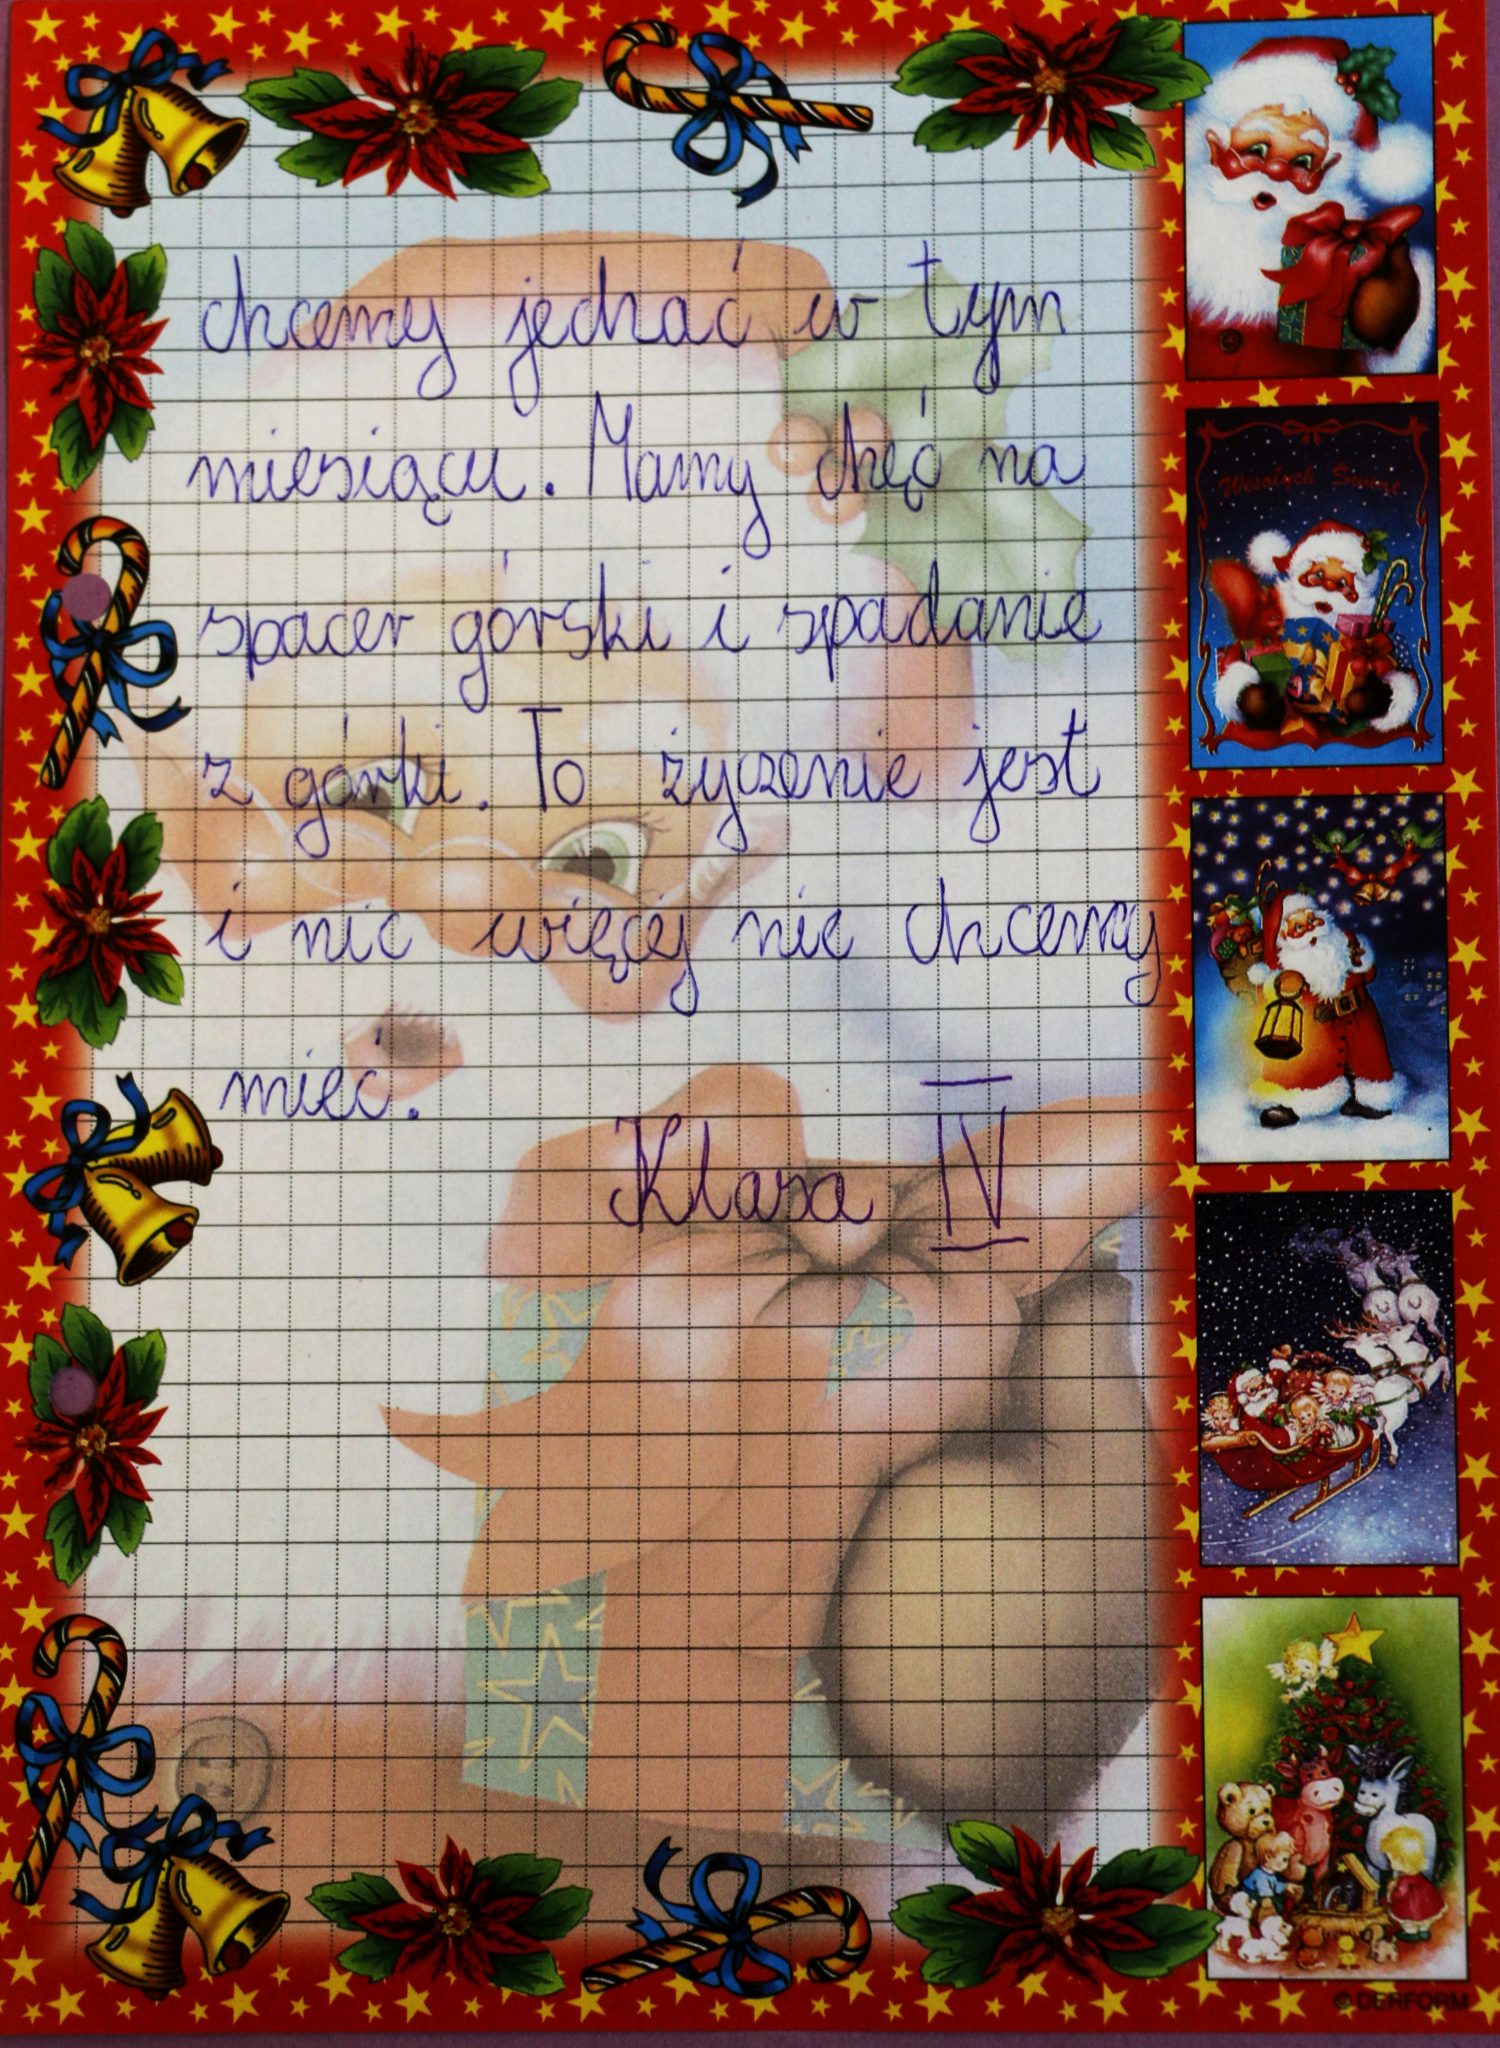 chcemy jechać w tym
miesiącu. Mamy chęć na
spacer górski i spadanie
z górki. To życzenie jest
i nic więcej nie chcemy
mieć.
Klasa IV
Wesołych Świąt
© DERFORM